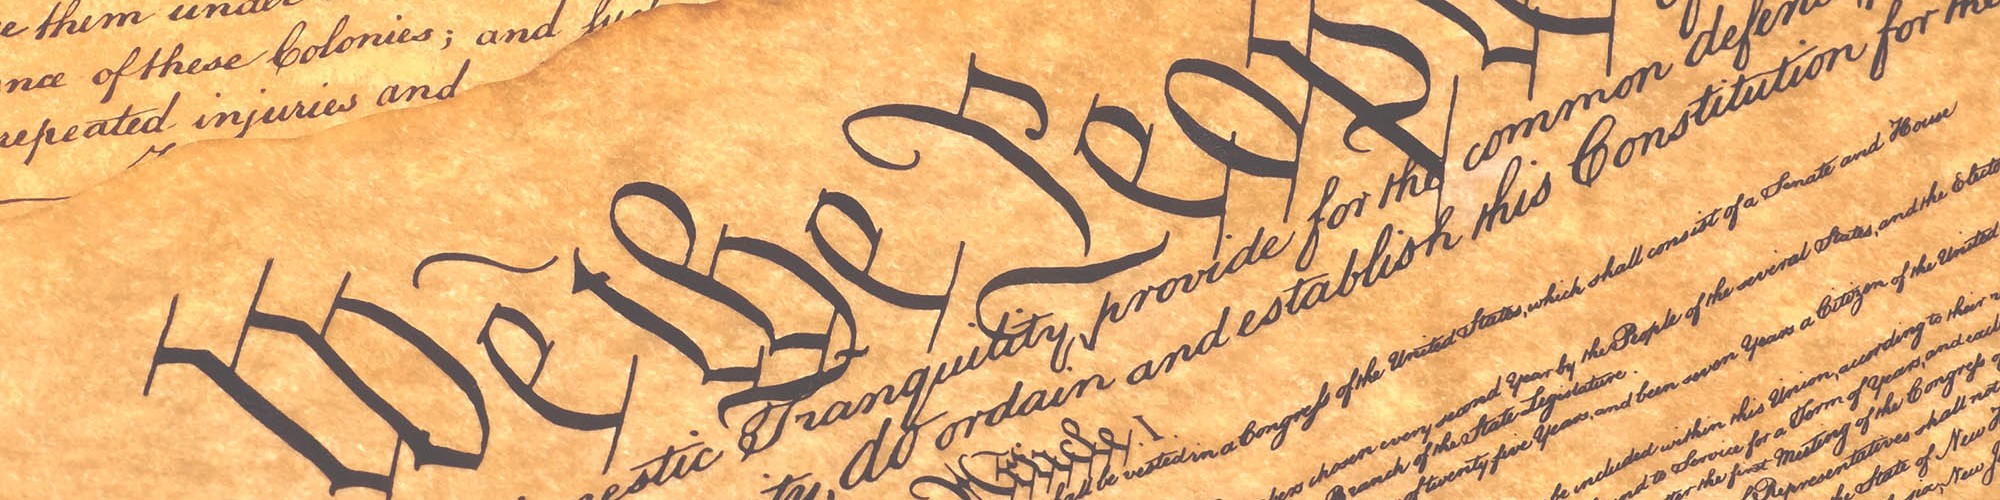 them under
of these Colonies; and such
repeated injuries and
We the People
Tranquility, provide for the common
do ordain and establish this Constitution for the
Article I
be vested in a Congress of the United States, which shall consist of a Senate and House
chosen every second Year by the People of the several States, and the
Branch of the State Legislature.
of twenty five Years, and been seven Years a Citizen of the United
be included within this Union, according to their
to Service for a Term of Years, and
the first Meeting of the Congress of
Representatives shall not
the State of New
New